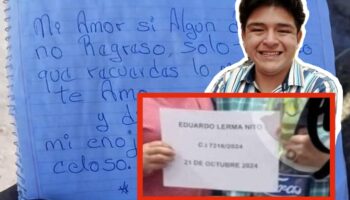 Mi Amor si Algun
no Regreso, solo
que recuerdas lo
te Amo
y
mi enoj
celoso.
EDUARDO LERMA NITO
C.I 7216/2024
21 DE OCTUBRE 2024